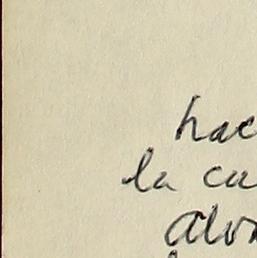 hac
la ca
alor